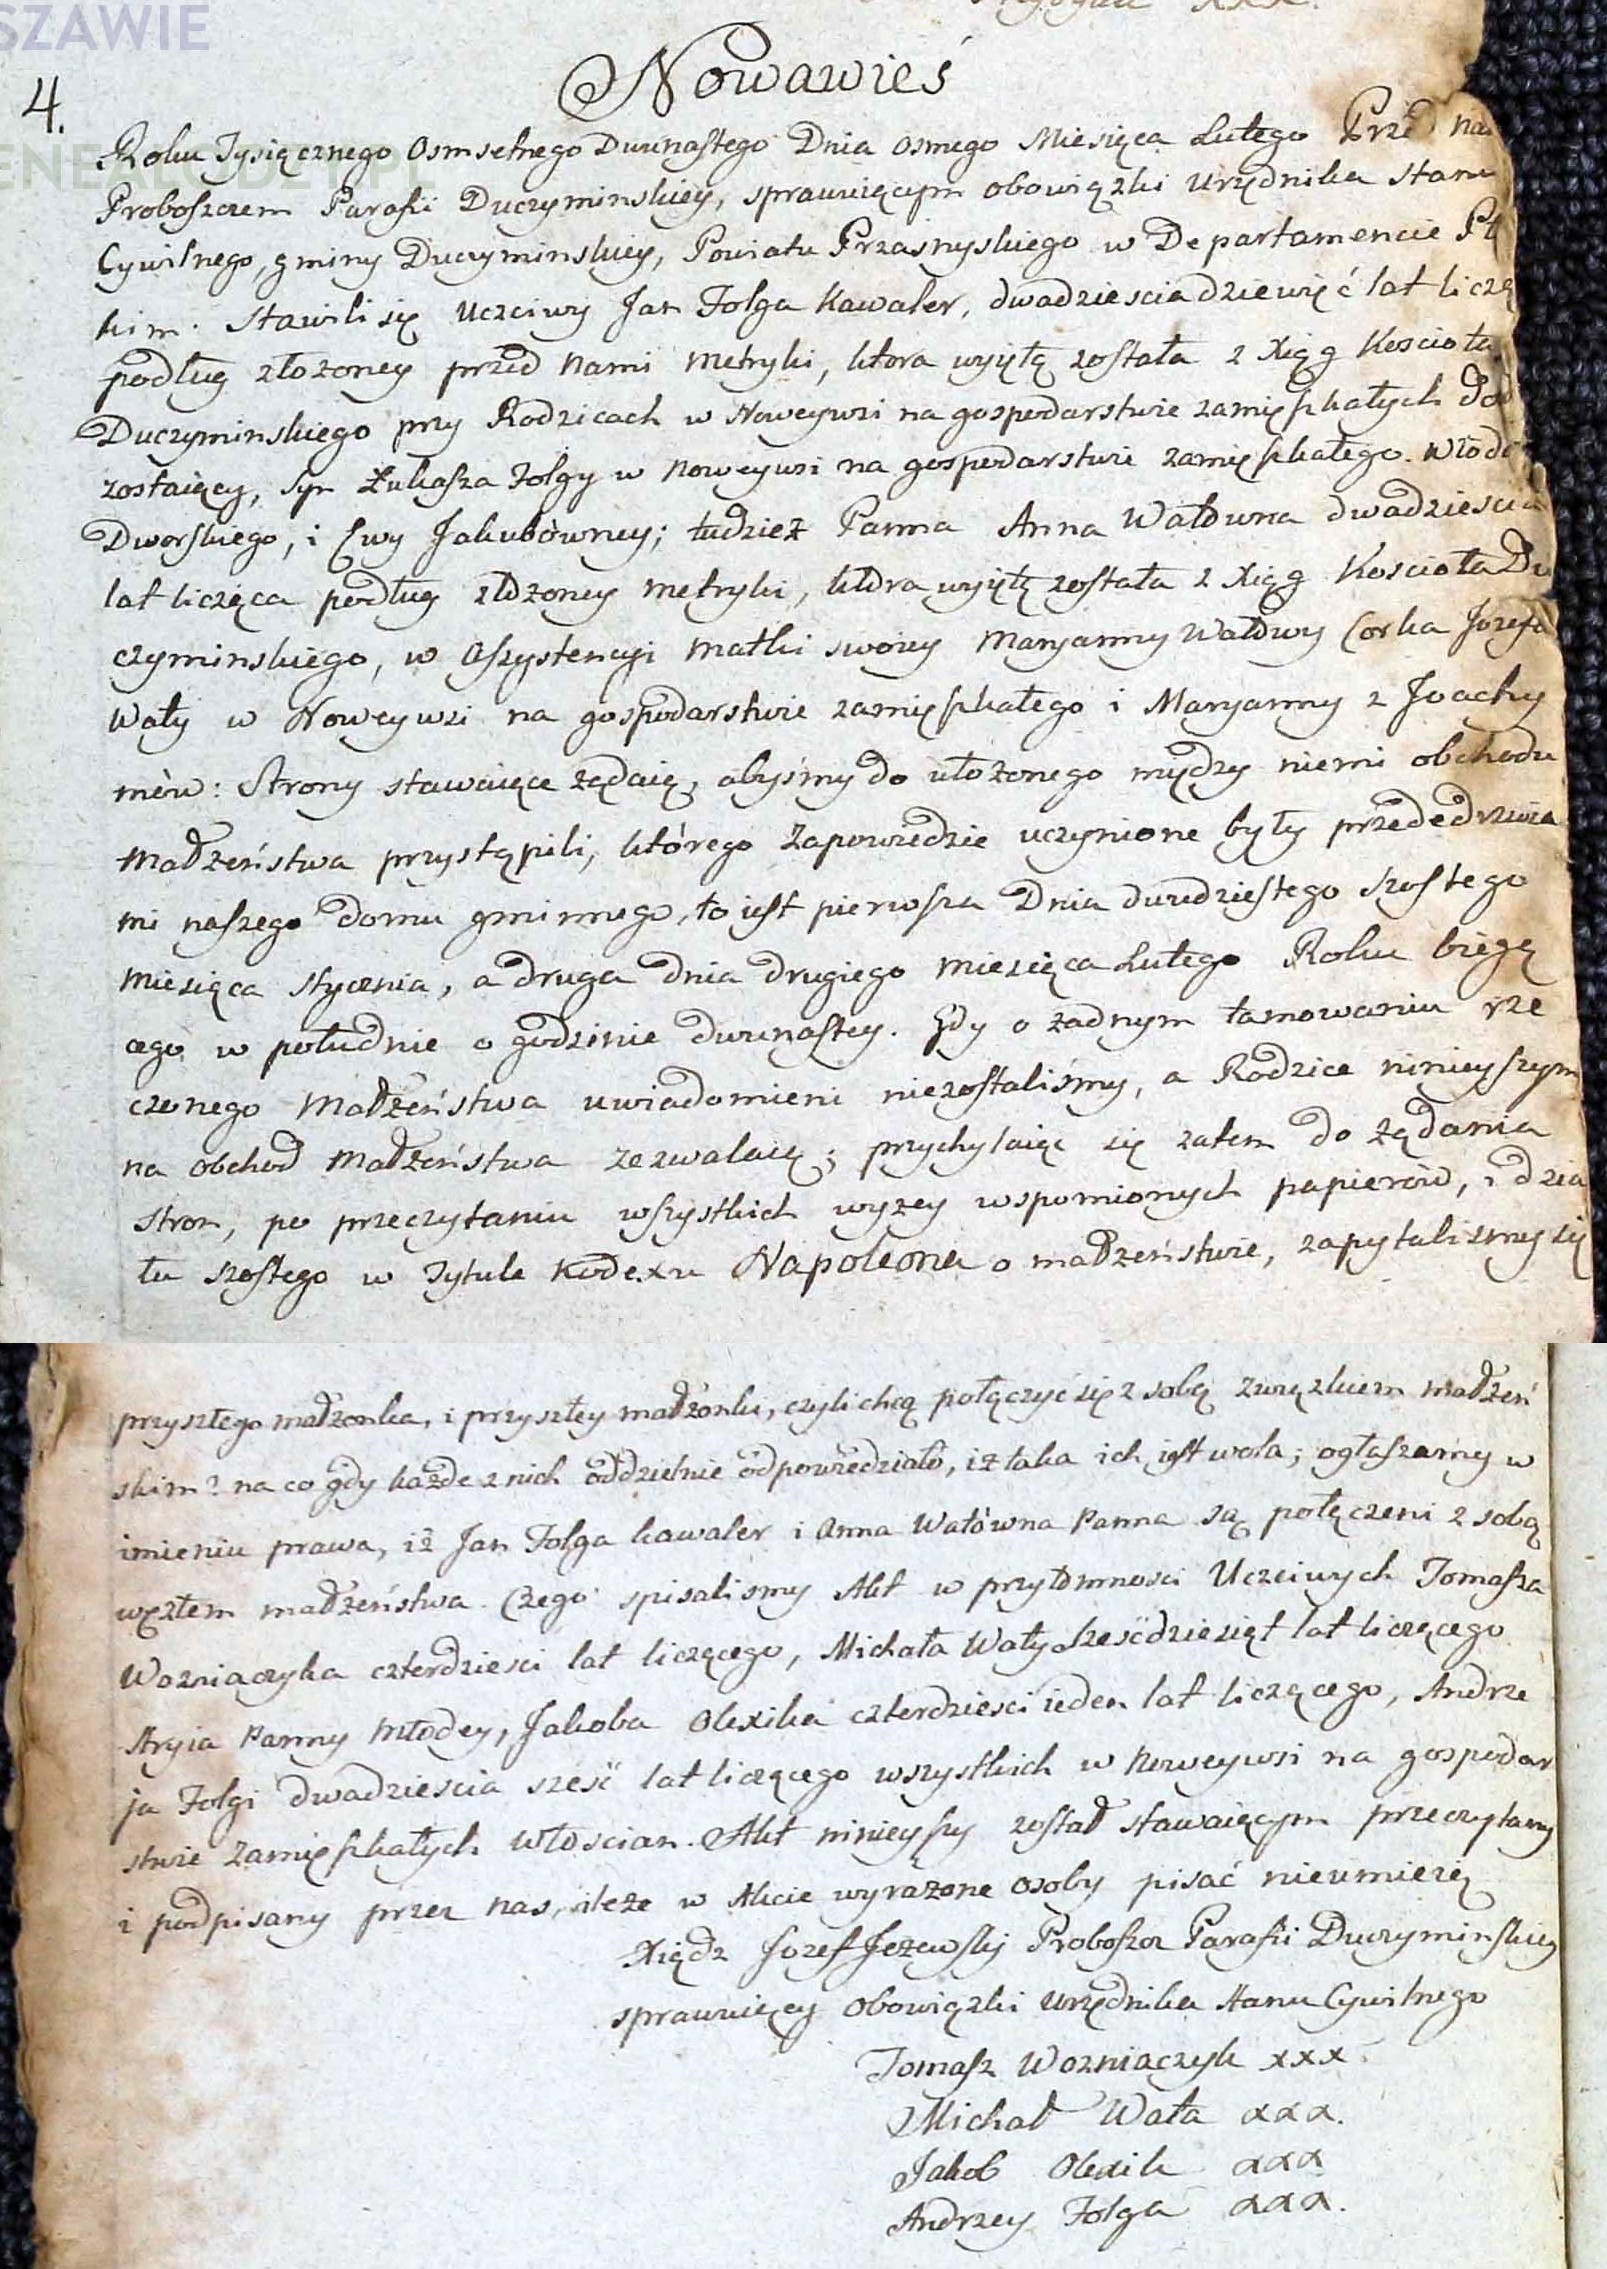 SZAWIE
ENEALODZY.PL
xxx.
Nowawieś
4.
Roku Tysiącznego Osmsetnego Dwunastego Dnia osmego Miesięca Lutego Przed na
Proboszczem Parafii Duczyminskiey, sprawuięcym obowiązki urzędnika stanu
Cywilnego, gminy Duczyminskiey, Powiatu Przasnyskiego w Departamencie Pł
kim. Stawili się Uczciwy Jan Folga Kawaler, dwadziescia dziewięć lat liczą
podług złożoney przed Nami metryki, ktora wyiętą została z Xiąg Koscioła
Duczyminskiego przy Rodzicach w Noweywsi na gospodarstwie zamięszkałych dod
zostaięcy, Syn Łukasza Folgy w Noweywsi na gospodarstwie zamięszkałego włośc
Dworskiego, i Ewy Jakubówney; tudzież Panna Anna Wałówna dwadziescia
lat licząca podług złożoney metryki, która wyiętą została z Xiąg Koscioła Du
czyminskiego, w Aszystencyi matki swoiey Maryanny Wałowy Corka Jozefa
Wały w Noweywsi na gospodarstwie zamięszkałego i Maryanny z Joachy
mów: Strony stawaięce żędaię, abyśmy do ułożonego między niemi obchodu
małżeństwa przystąpili, którego Zapowiedzie uczynione były przededrzwia
mi naszego domu gminnego, to iest pierwsza Dnia dwudziestego szostego
miesiąca stycznia, a druga dnia drugiego miesięca Lutego Roku bieżą
cego w południe o godzinie dwunastey. Gdy o żadnym tamowaniu rze
czonego Małżeństwa uwiadomieni niezostaliśmy, a Rodzice ninieyszym
na obchod małżeństwa zezwalaię; przychylaięc się zatem do żądania
stron, po przeczytaniu wszystkich wyzey wspomionych papierów, i dzia
łu szostego w Tytule Kodexu Napoleona o małżeństwie, zapytalismy się
przyszłego małżonka, i przyszłey małżonki, czyli chcą połączyć się z sobą zwiąkiem małżeń
skim? na co gdy każde z nich oddzielnie odpowiedziało, iż taka ich iest wola; ogłaszamy w
imieniu prawa, iż Jan Folga kawaler i Anna Wałówna Panna są połączeni z sobą
węzłem małżeństwa. Czego spisalismy Akt w przytomnosci Uczciwych Tomasza
Wozniaczyka czterdziesci lat liczącego, Michała Wały sześćdziesięt lat liczącego
stryia Panny młodey, Jakoba Olexika czterdziesci ieden lat liczącego, Andrze
ja Folgi dwadziescia sześć lat liczącego wszystkich w Noweywsi na gospodar
stwie zamięszkałych włościan. Akt ninieyszy został stawaięcym przeczytany
i podpisany przez nas, ileże w Akcie wyrażone osoby pisać nieumieię
Xiądz Jozef Jeżewski Proboszcz Parafii Duczyminskiey
sprawuięcy obowiązki urzędnika stanu Cywilnego
Tomasz Wozniaczyk xxx.
Michał Wała xxx.
Jakob Olexik xxx
Andrzey Folga xxx.